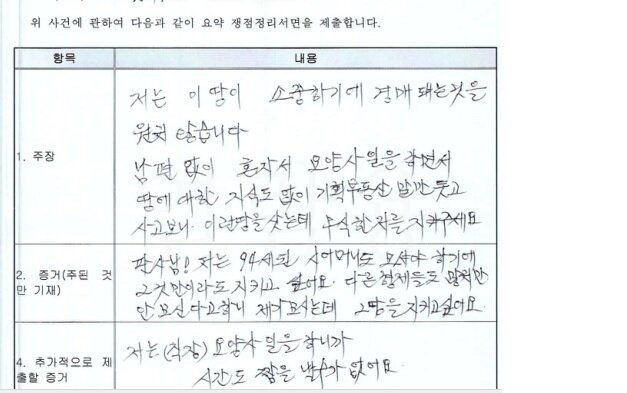 위 사건에 관하여 다음과 같이 요약 쟁점정리서면을 제출합니다.
항목
내용
1. 주장
저는 이 땅이 소중하기에 경매 돼는것을
원치 않습니다
남편 없이 혼자서 요양사 일을 하면서
땅에 대한 지식도 없이 기획부동산 말만 듯고
사고보니 이런땅을 삿는데 무식한 저를 지켜주세요
2. 증거(주된 것
만 기재)
판사님! 저는 94세된 시어머니도 모셔야 하기에
그것만이라도 지키고 싶어요. 다른 형제들도 많지만
안 모신다고하니 제가 모시는데 그땅을 지키고싶어요
4. 추가적으로 제
출할 증거
저는 (직장) 요양사 일을 하니까
시간도 짬을 낼수가 없어요